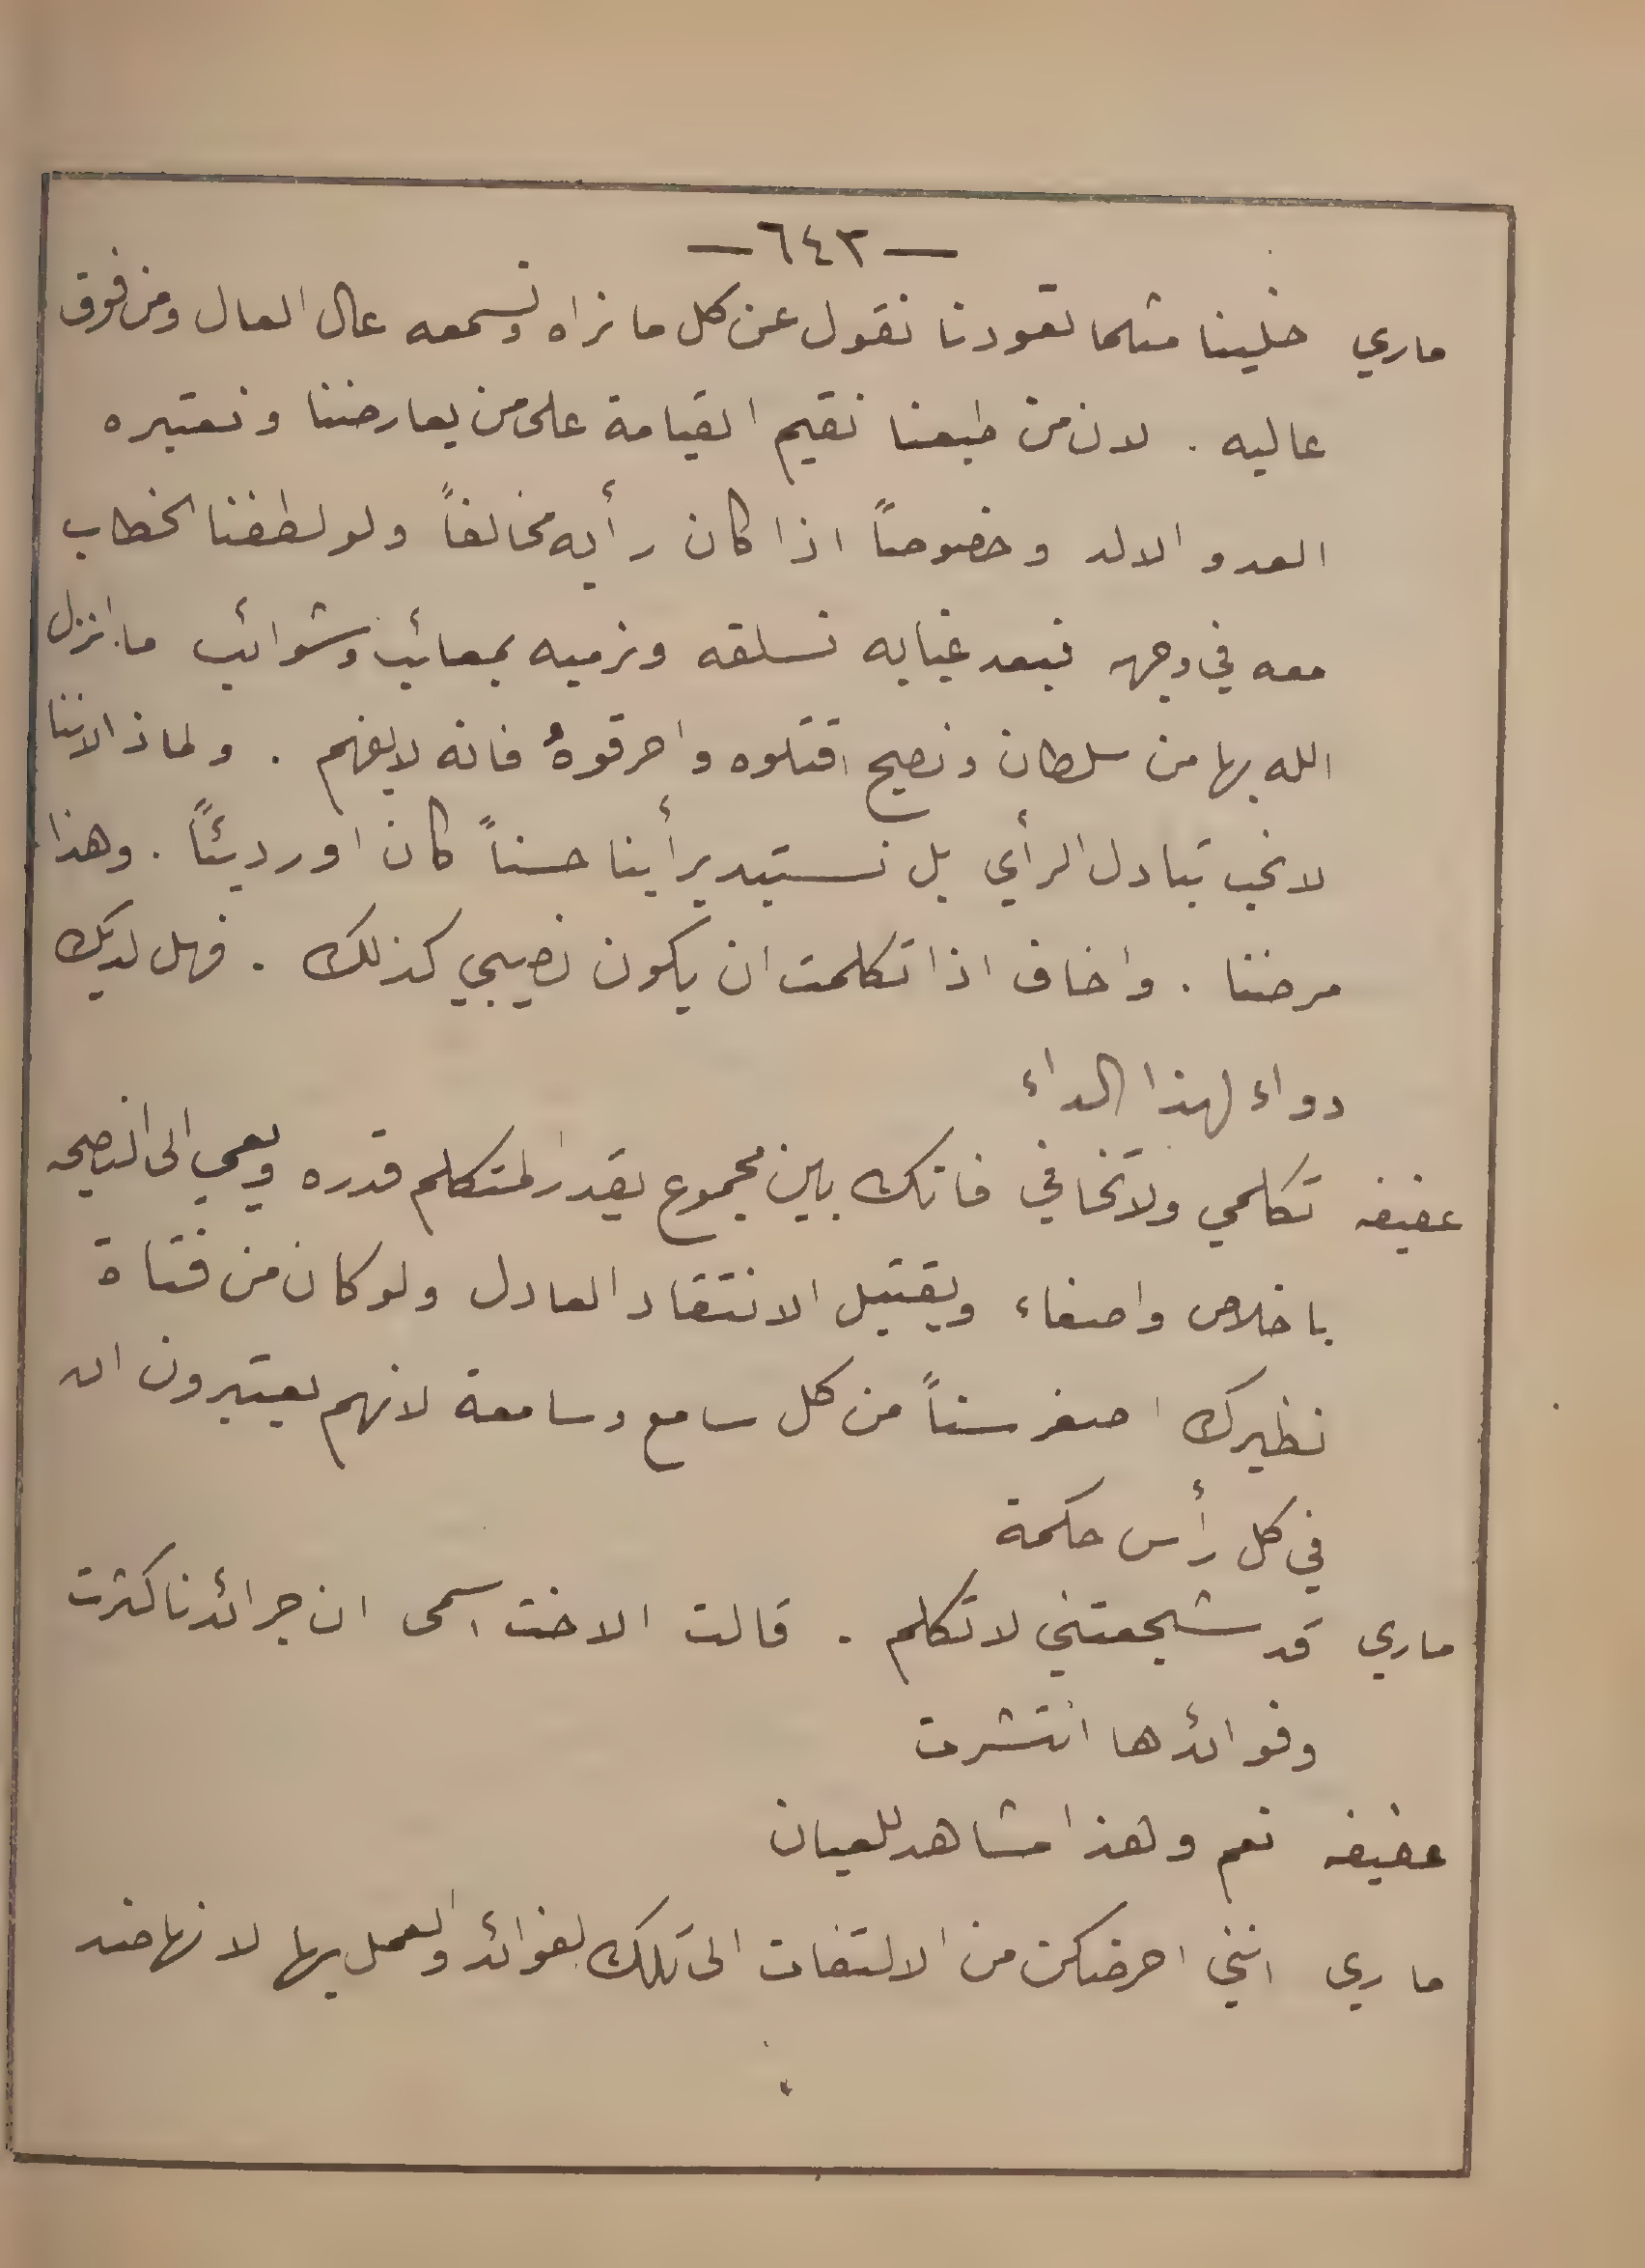 — ٦٤٣ —
ماري خلينا مثلما تعودنا نقول عن كل ما نراه ونسمعه عال العال ومن فوق
عاليه . لان من طبعنا نقيم القيامة على من يعارضنا ونعتبره
العدو الالد وخصوصاً اذا كان رأيه مخالفاً ولو لطفنا الخطاب
معه في وجهه فبعد غيابه نسلقه ونرميه بمعائب وشوائب ما انزل
الله بها من سلطان ونصيح اقتلوه واحرقوهُ فانه لا يفهم . ولماذا لاننا
لا نحب تبادل الرأي بل نستبد برأينا حسناً كان او رديئاً . وهذا
مرضنا . واخاف اذا تكلمت ان يكون نصيبي كذلك . فهل لديك
دواء لهذا الداء
عفيفه تكلمي ولا تخافي فانك بين مجموع يقدر المتكلم قدره ويعي الى النصيحه
باخلاص واصغاء ويقتبل الانتقاد العادل ولو كان من فتاة
نظيرك اصغر سناً من كل سامع وسامعة لانهم يعتبرون ان
في كل رأس حكمة
ماري قد شجعتني لاتكلم . قالت الاخت اسمى ان جرائدنا كثرت
وفوائدها انتشرت
عفيفه نعم وهذا مشاهد للعيان
ماري انني احرضكن من الالتفات الى تلك الفوائد والعمل بها لانها ضد